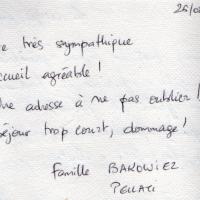 26/0
très sympathique
cueil agréable !
ne adresse à ne pas oublier !
séjour trop court, dommage !
Famille BAKOWIEZ